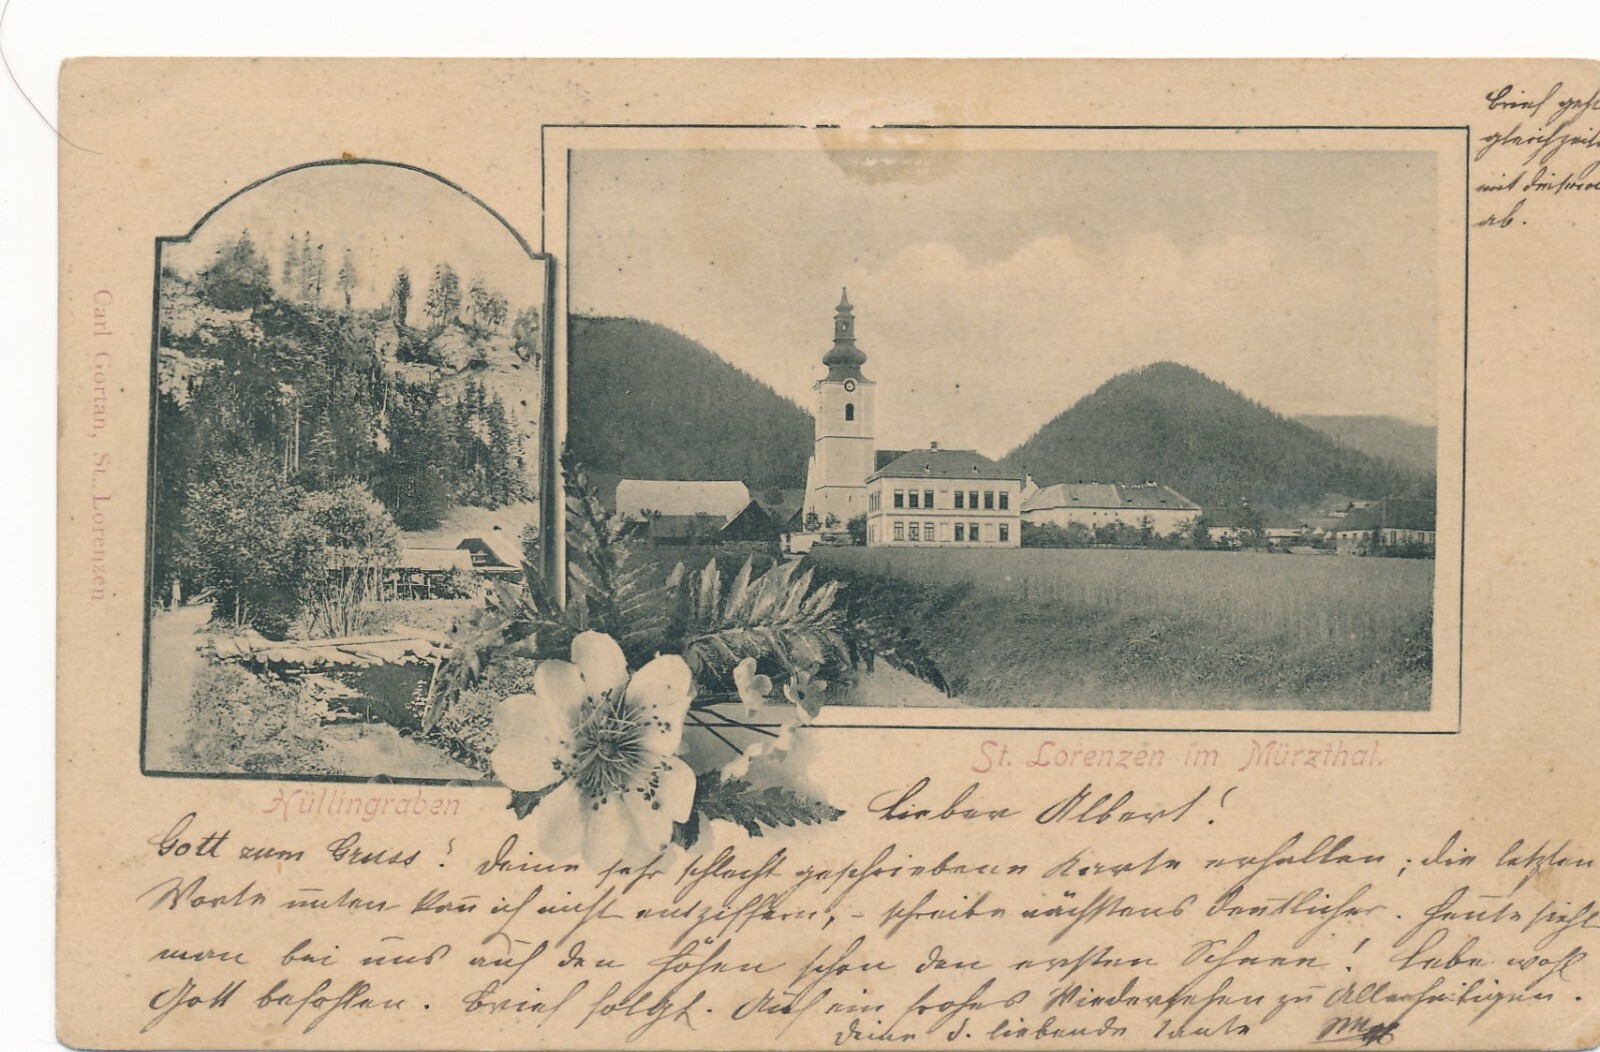 Brief geht
gleichzeitig
mit
ab.
Carl Gortan, St. Lorenzen
St. Lorenzen im Mürzthal.
Nüllingraben
Lieber Albert!
Gott zum Gruss! Deine sehr schlecht geschriebene Karte erhalten; die letzten
Worte unten kan̄ ich nicht entziffern; – schreibe nächstens deutlicher. Heute sieht
man bei uns auf den Höhen schon den ersten Schnee! Lebe wohl
Gott befohlen. Brief folgt. Auf ein frohes Wiedersehen zu Allerheiligen.
Deine d. liebende Tante